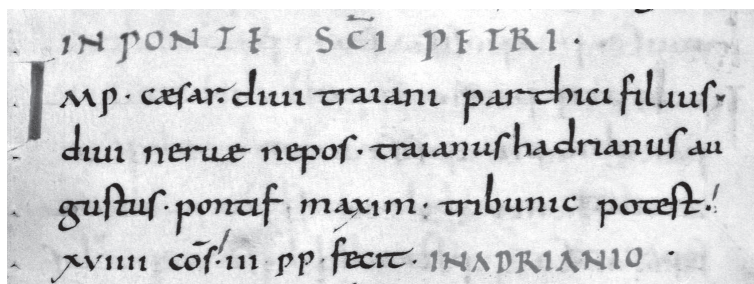 IN PONTE SC̄I PETRI ·
IMP · cæsar · diui traiani parthici filius ·
diui neruæ nepos · traianus hadrianus au
gustus · pontif maxim · tribunic potest ·
xviiii cōs · iii pp · fecit · IN ADRIANIO ·